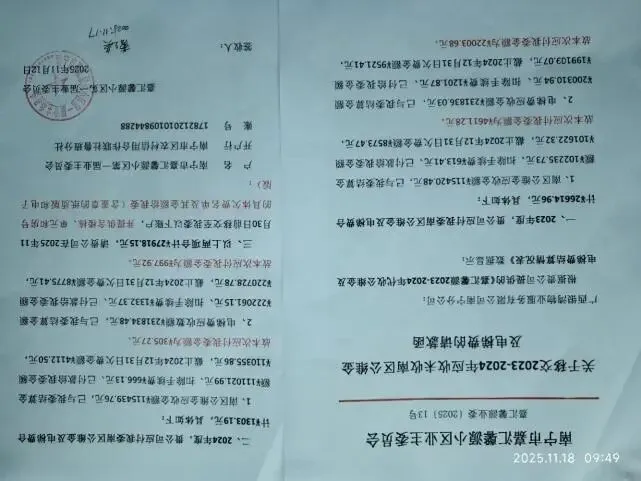 南宁市嘉汇馨源小区业主委员会
嘉汇馨源业委〔2025〕13号
关于移交2023-2024年应收未收南区公维金
及电梯费的请款函
物业服务有限公司南宁分公司：
根据贵公司提供的《嘉汇馨源2023-2024年代收公维金及
电梯费结算情况》数据显示：
一、2023年度，贵公司应付我委南区公维金及电梯费合
计¥26614.96元，具体如下：
1、南区公维金应收金额¥115420.48元，已与我委结算金
额¥102235.73元、扣除手续费¥613.41元、已付款给我委金额
¥101622.32元，截止2024年12月31日欠费金额¥8573.47元，
故本次应付我委金额为¥4611.28元。
2、电梯费应收金额¥231836.03元，已与我委结算金额
¥200310.94元、扣除手续费¥1201.87元、已付给我委金额
¥199109.07元，截止2024年12月31日欠费金额¥9521.41元，
故本次应付我委金额为¥22003.68元。
二、2024年度，贵公司应付我委南区公维金及电梯费合
计¥1303.19元，具体如下：
1、南区公维金应收金额¥115439.76元，已与我委结算金
额¥111021.99元、扣除手续费¥666.13元、已付款给我委金额
¥110355.86元，截止2024年12月31日欠费金额¥4112.50元，
故本次应付我委金额为¥305.27元。
2、电梯费应收金额¥231834.48元，已与我委结算金额
¥222061.15元、扣除手续费¥1332.37元、已付款给我委金额
¥220728.78元，截止2024年12月31日欠费金额¥8775.41元，
故本次应付我委金额为¥997.92元。
三、以上两项合计¥27918.15元，请贵公司在2025年11
月30日前移交至我委以下账户，并提供含楼栋、单元和房号
的具体欠费名单及其金额给我委（含盖章的纸质版和电子
版）：
户 名 南宁市嘉汇馨源小区第一届业主委员会
开户行 南宁市区农村信用合作联社鲁班分社
账 号 178212010109844288
嘉汇馨源小区第一届业主委员会
2025年11月12日
签收人：
2025.11.17
2025.11.18 09:49